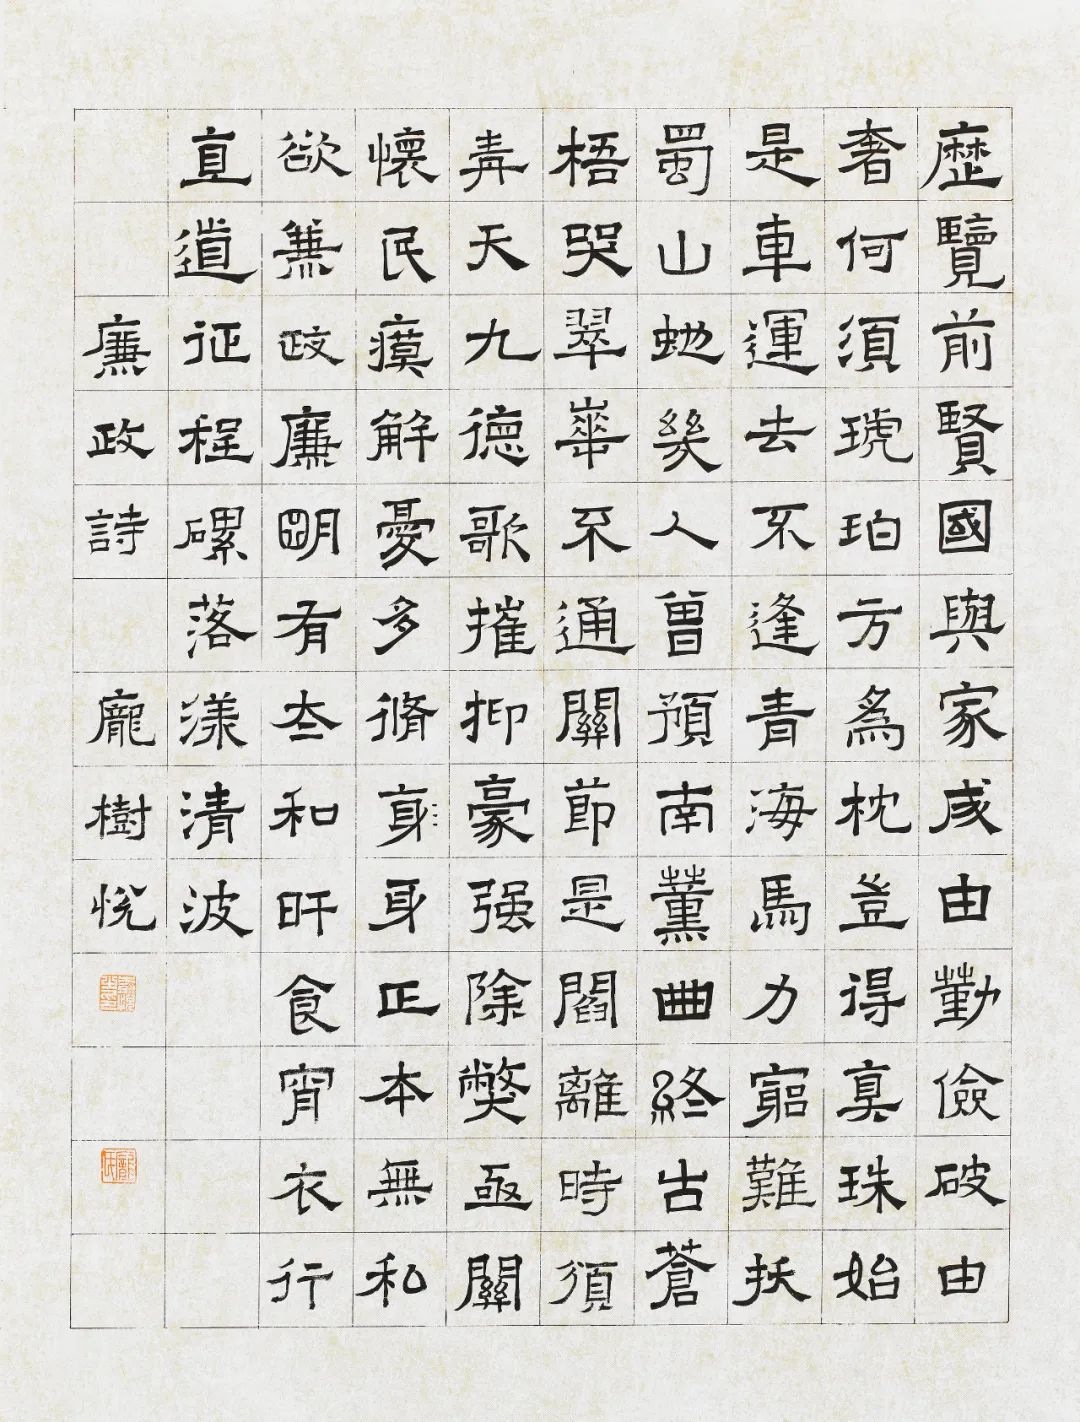 歷覽前賢國與家成由勤儉破由
奢何須琥珀方為枕豈得真珠始
是車運去不逢青海馬力窮難拔
蜀山蛇幾人曾預南薰曲終古蒼
梧哭翠華不通關節是閻離時須
青天九德歌摧抑豪强除弊亟關
懷民瘼解憂多脩身身正本無私
欲兼政廉明有太和旰食宵衣行
直道征程磥落漾清波
廉政詩
龐樹悅